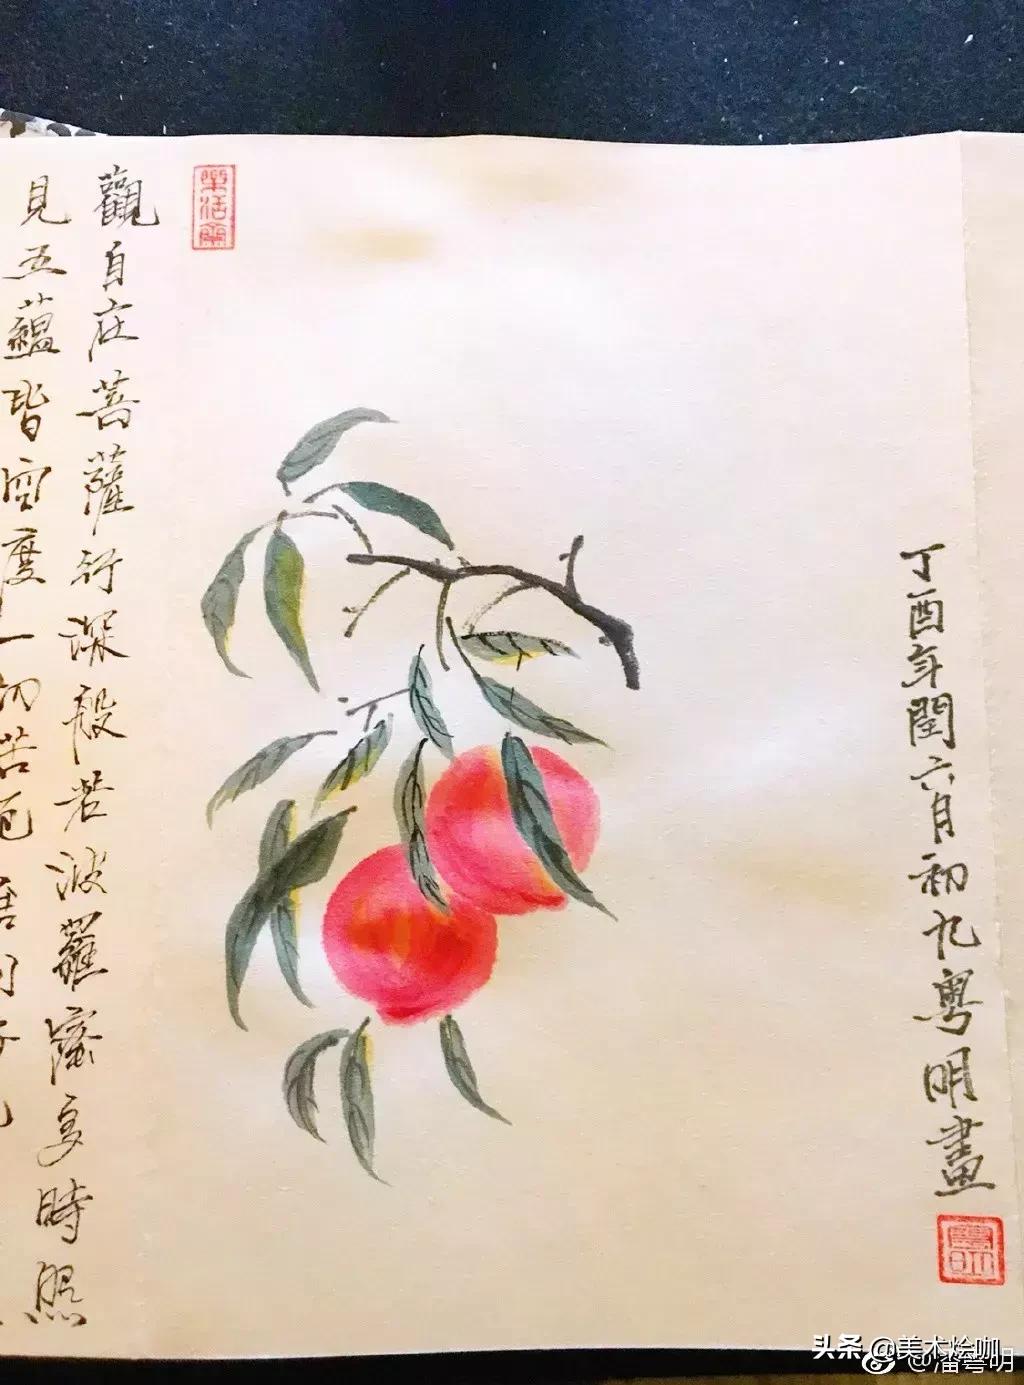 丁酉年閏六月初九粤明畫
樂活齋
觀自在菩薩行深般若波羅蜜多時照
見五蘊皆空度一切苦厄
头条 @美术烩咖
@潘粤明